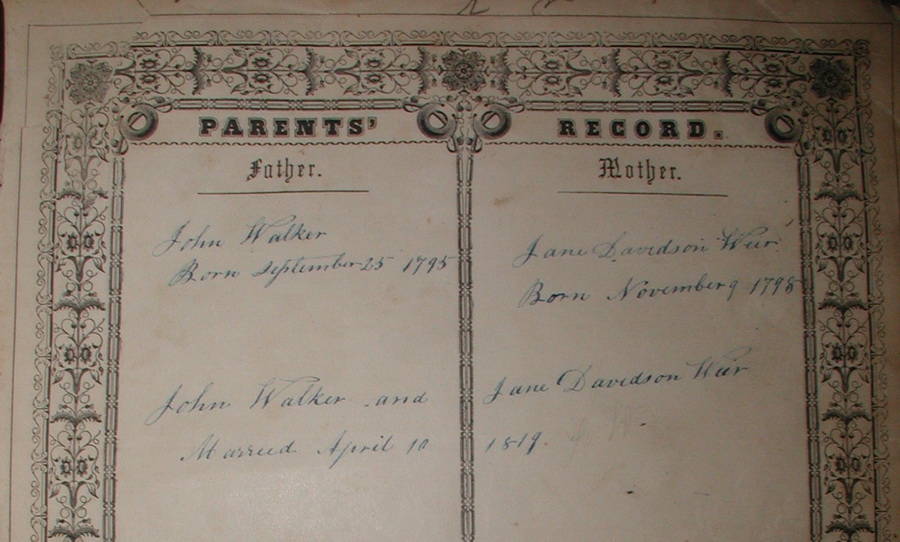 PARENTS' RECORD.
Father. Mother.
John Walker
Born September 25 1795
Jane Davidson Weir
Born November 9 1798
John Walker and Jane Davidson Weir
Married April 10 1819.